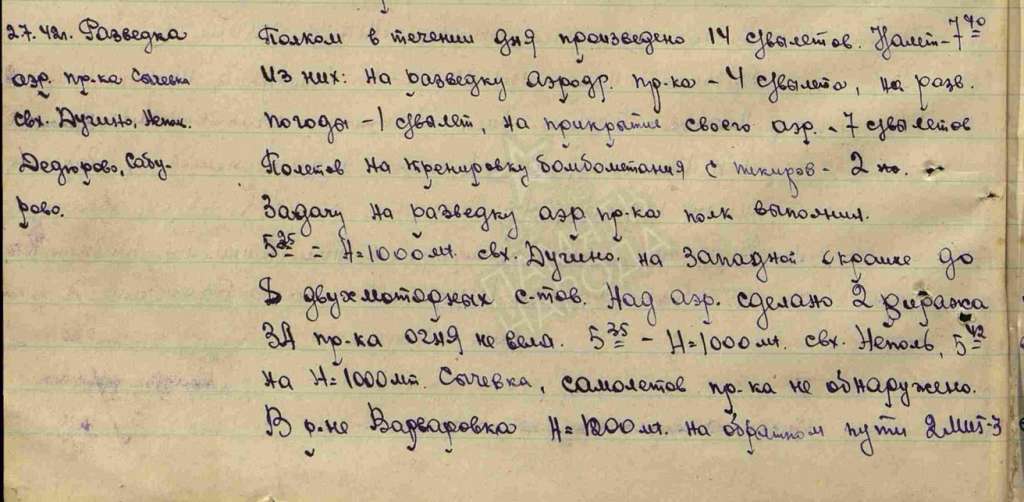 27.42г. Разведка
аэр. пр-ка Сычевка
свх. Дугино, Непол.
Дедюрово, Сабу-
рово.
Полком в течении дня произведено 14 с/вылетов. Налет - 7 40
Из них: на разведку аэродр. пр-ка - 4 с/вылета, на разв.
погоды - 1 с/вылет, на прикрытие своего аэр. - 7 с/вылетов
Полетов на тренировку бомбометания с пикиров - 2
Задачу на разведку аэр пр-ка полк выполнил.
5 35 = Н=1000 мт. свх. Дугино. на западной окраине до
8 двухмоторных с-тов. Над аэр. сделано 2 виража
ЗА пр-ка огня не вела. 5 35 - Н=1000 мт. свх. Неполь, 5 42
на Н=1000мт. Сычевка, самолетов пр-ка не обнаружено.
В р-не Варваровка Н=1200 мт. на обратном пути 2 МИГ-3